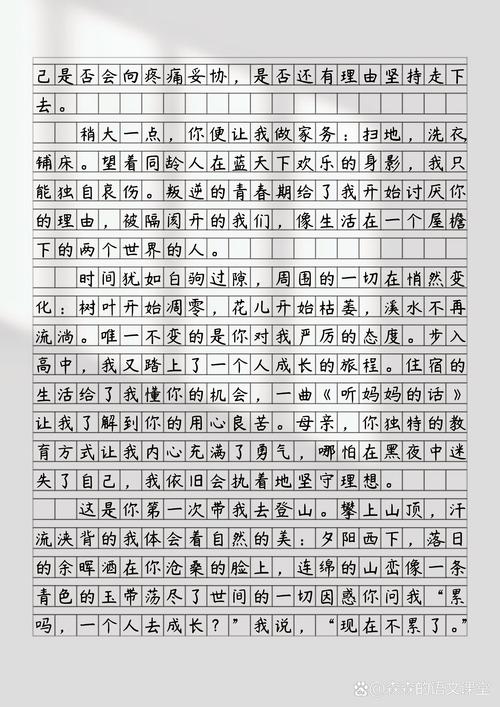 己是否会向疼痛妥协，是否还有理由坚持走下
去。
稍大一点，你便让我做家务：扫地，洗衣
铺床。望着同龄人在蓝天下欢乐的身影，我只
能独自哀伤。叛逆的青春期给了我开始讨厌你
的理由，被隔阂开的我们，像生活在一个屋檐
下的两个世界的人。
时间犹如白驹过隙，周围的一切在悄然变
化：树叶开始凋零，花儿开始枯萎，溪水不再
流淌。唯一不变的是你对我严厉的态度。步入
高中，我又踏上了一个人成长的旅程。住宿的
生活给了我懂你的机会，一曲《听妈妈的话》
让我了解到你的用心良苦。母亲，你独特的教
育方式让我内心充满了勇气，哪怕在黑夜中迷
失了自己，我依旧会执着地坚守理想。
这是你第一次带我去登山。攀上山顶，汗
流浃背的我体会着自然的美：夕阳西下，落日
的余晖洒在你沧桑的脸上，连绵的山峦像一条
青色的玉带荡尽了世间的一切因惑你问我“累
吗，一个人去成长？”我说，“现在不累了。”
森森的语文课堂